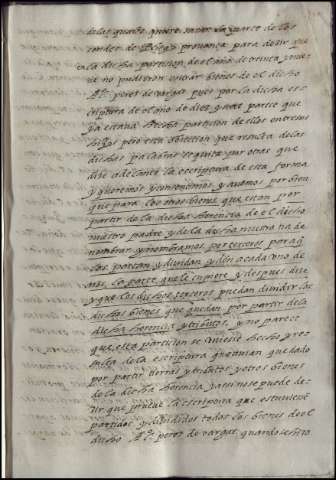 de las quales quiere sacar la parte de los
condes de Priego provança para decir que
en la dicha particion de el año de treinta y nueve
no pudieron entrar bienes de el dicho
Al.º perez de vargas pues por la dicha es
criptura de el año de diez y siete parece que
ya estava hecha particion de ellos entre sus
hijos pero esta objecion que resulta de las
dichas palabras se quita por otras que
dice adelante la escriptura de esta forma
y queremos y consentimos y avemos por bien
que para los otros bienes que estan por
partir de la dicha herencia de el dicho
nuestro padre y de la dicha nuestra
nombrar y nombramos por terceros para q
los partan y dividan y den a cada uno de
nos la parte que le cupiere y despues dice
y que los dichos terceros puedan dividir los
dichos bienes que quedan por partir de la
dicha herencia y tributos y no parece
que esta particion se uviese hecho y re
sulta de la escriptura que avian quedado
por partir tierras y tributos y otros bienes
de la dicha herencia, y assi no se puede de
cir que prueve la escriptura que estuviesen
partidos y divididos todos los bienes de el
dicho Al.º perez de vargas quando se hizo